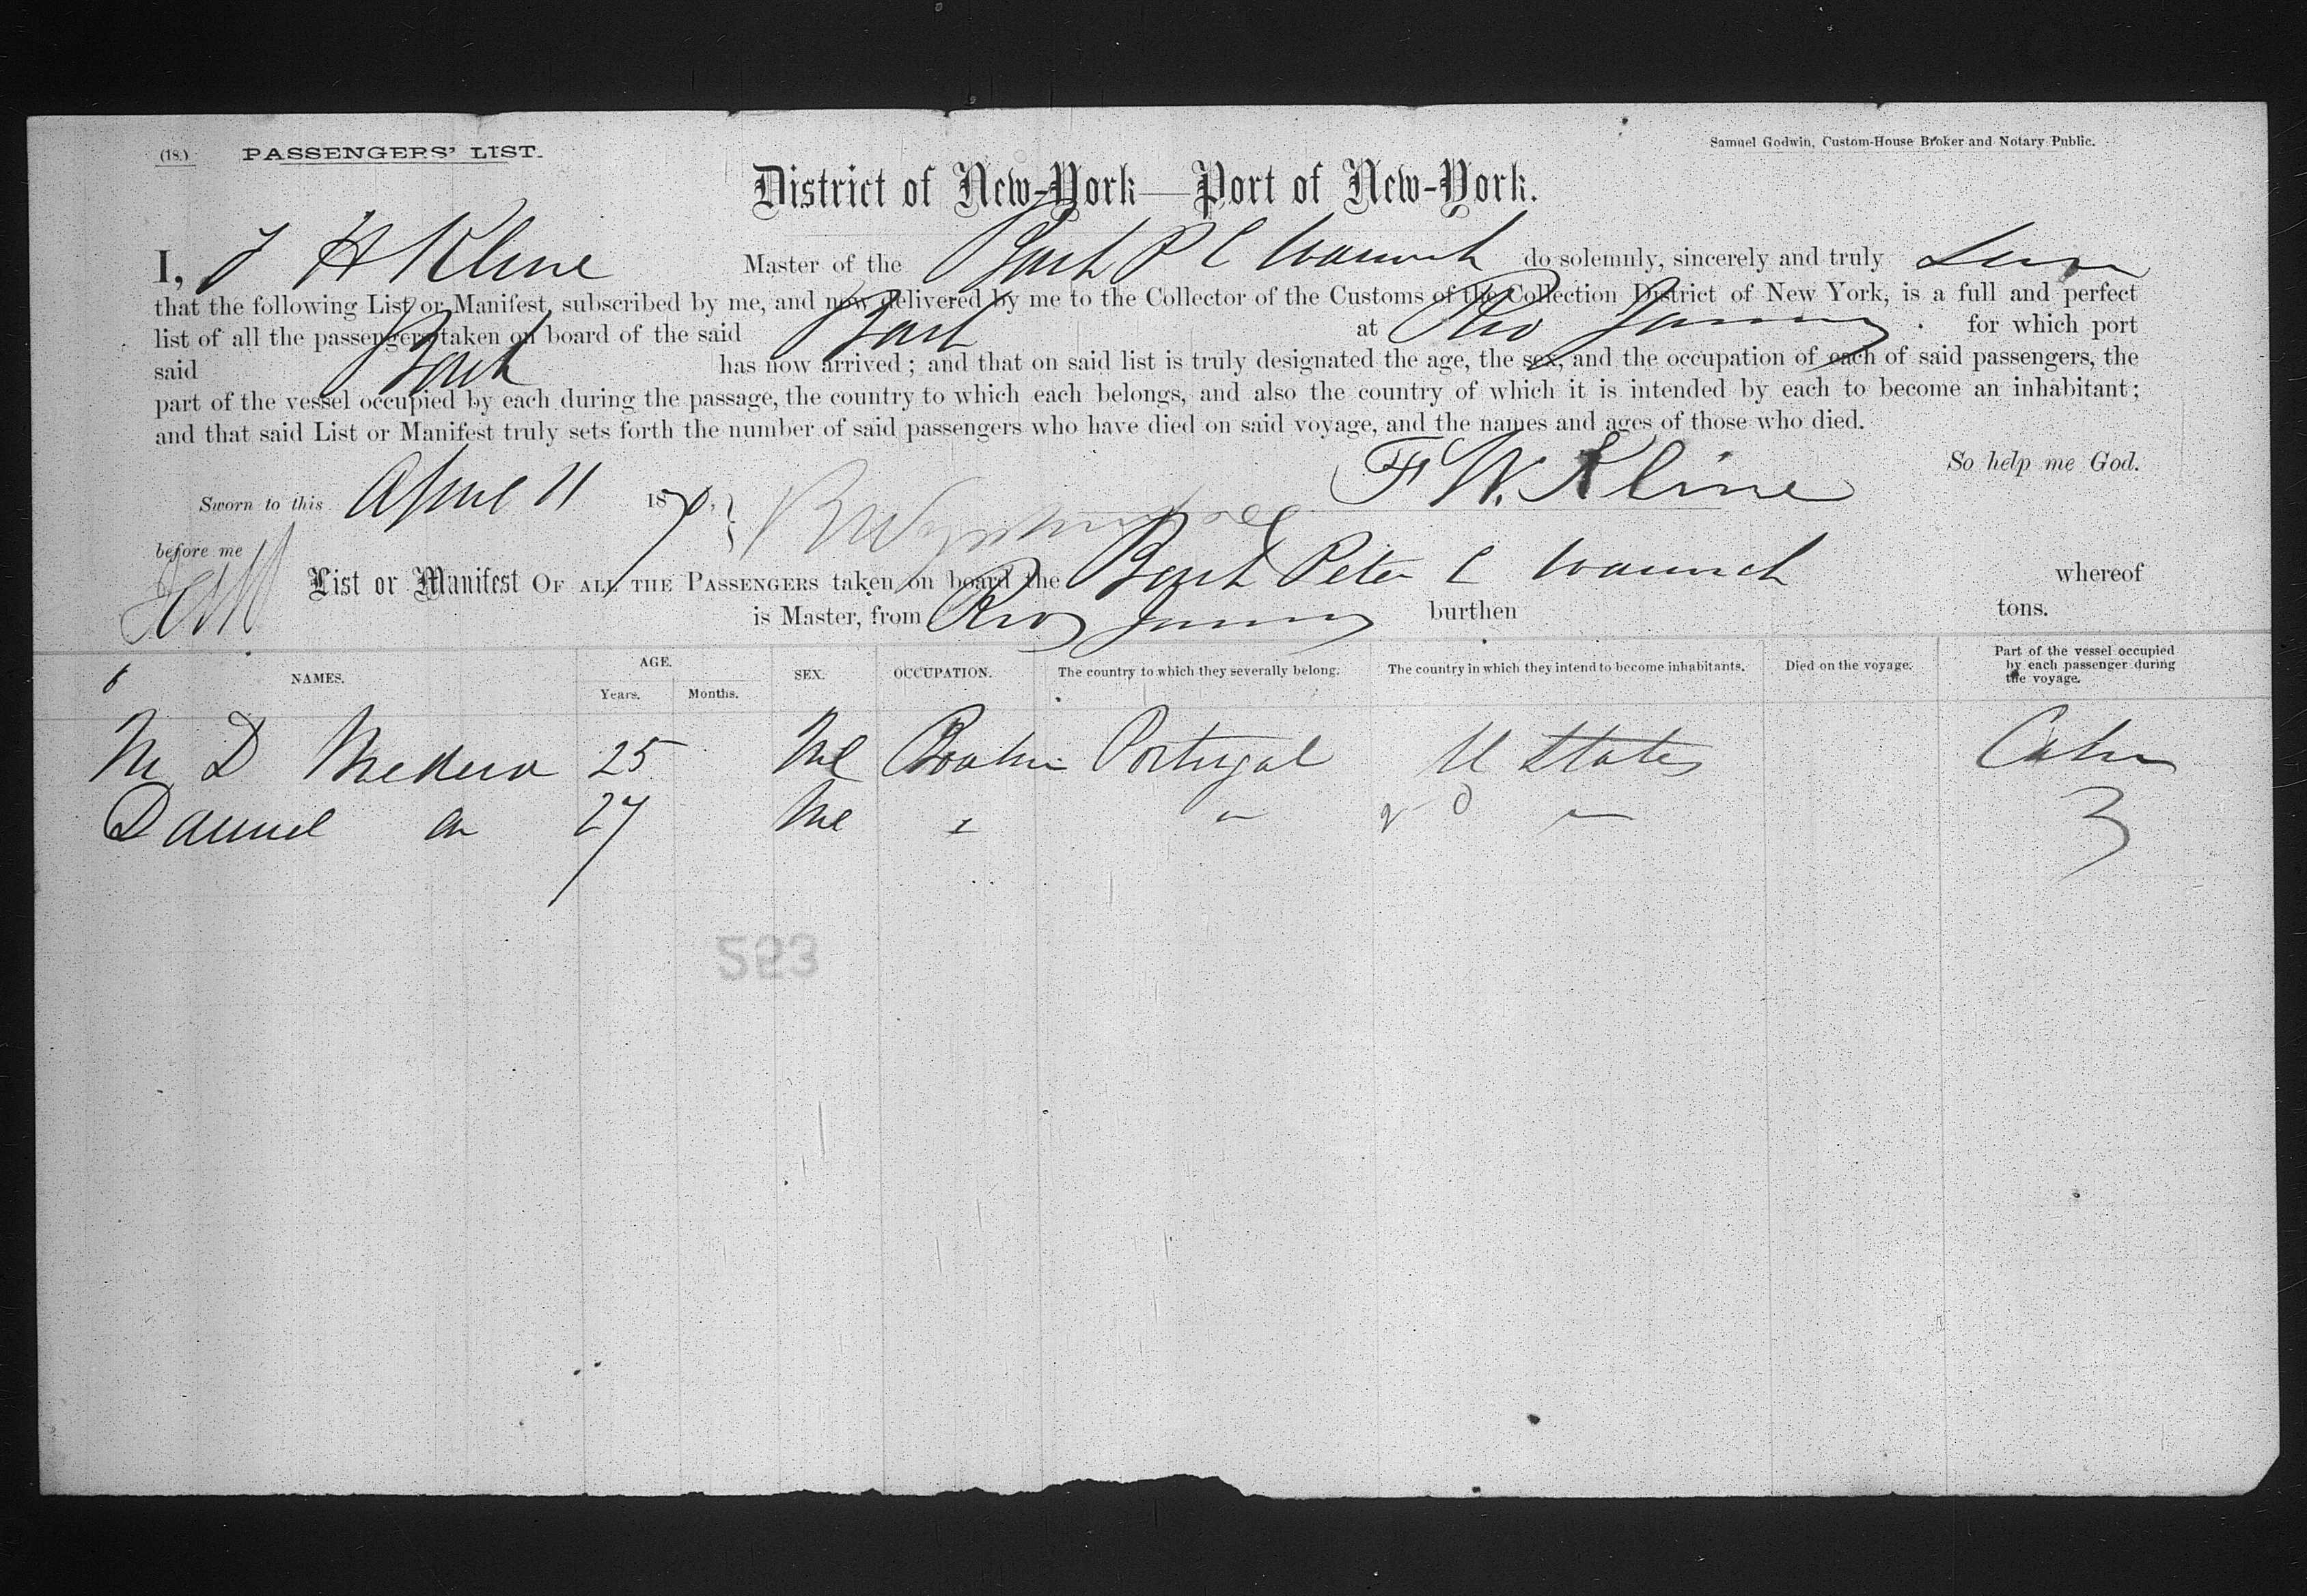 (18.) PASSENGERS' LIST.
Samuel Godwin, Custom-House Broker and Notary Public.
District of New-York—Port of New-York.
I, F H Kline Master of the Bark P C do solemnly, sincerely and truly
that the following List or Manifest, subscribed by me, and now delivered by me to the Collector of the Customs of the Collection District of New York, is a full and perfect
list of all the passengers taken on board of the said Bark at Rio for which port
said Bark has now arrived; and that on said list is truly designated the age, the sex, and the occupation of each of said passengers, the
part of the vessel occupied by each during the passage, the country to which each belongs, and also the country of which it is intended by each to become an inhabitant;
and that said List or Manifest truly sets forth the number of said passengers who have died on said voyage, and the names and ages of those who died.
So help me God.
F W. Kline
Sworn to this April 11 1870,
before me
List or Manifest OF ALL THE PASSENGERS taken on board the Bark Peter C whereof
is Master, from Rio burthen tons.
NAMES. AGE. Years. Months. SEX. OCCUPATION. The country to which they severally belong. The country in which they intend to become inhabitants. Died on the voyage. Part of the vessel occupied by each passenger during the voyage.
M D 25 Portugal U States
27
523